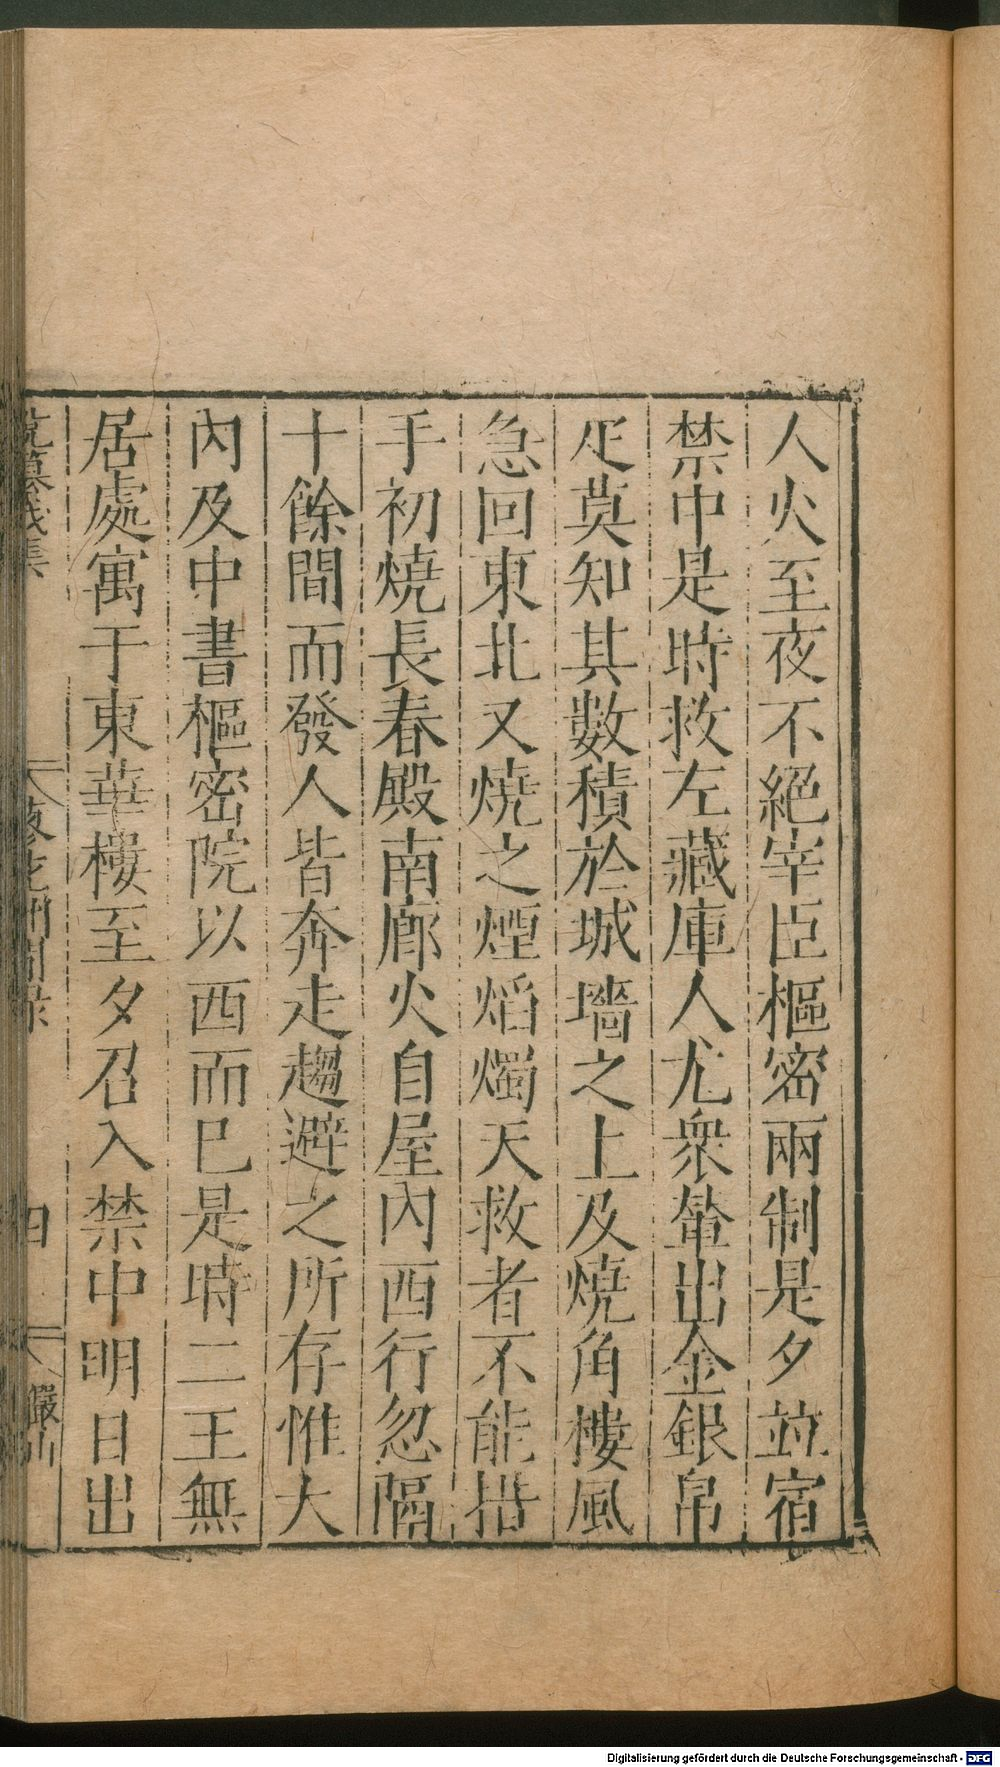 人火至夜不絕宰臣樞密兩制是夕並宿
禁中是時救左藏庫人尤衆輦出金銀帛
疋莫知其數積於城墻之上及燒角樓風
急回東北又燒之煙焰燭天救者不能措
手初燒長春殿南廊火自屋內西行忽隔
十餘間而發人皆奔走趨避之所存惟大
內及中書樞密院以西而巳是時二王無
居處寓于東華樓至夕召入禁中明日出
蓼花洲閒錄
四
儼山
Digitalisierung gefördert durch die Deutsche Forschungsgemeinschaft - DFG